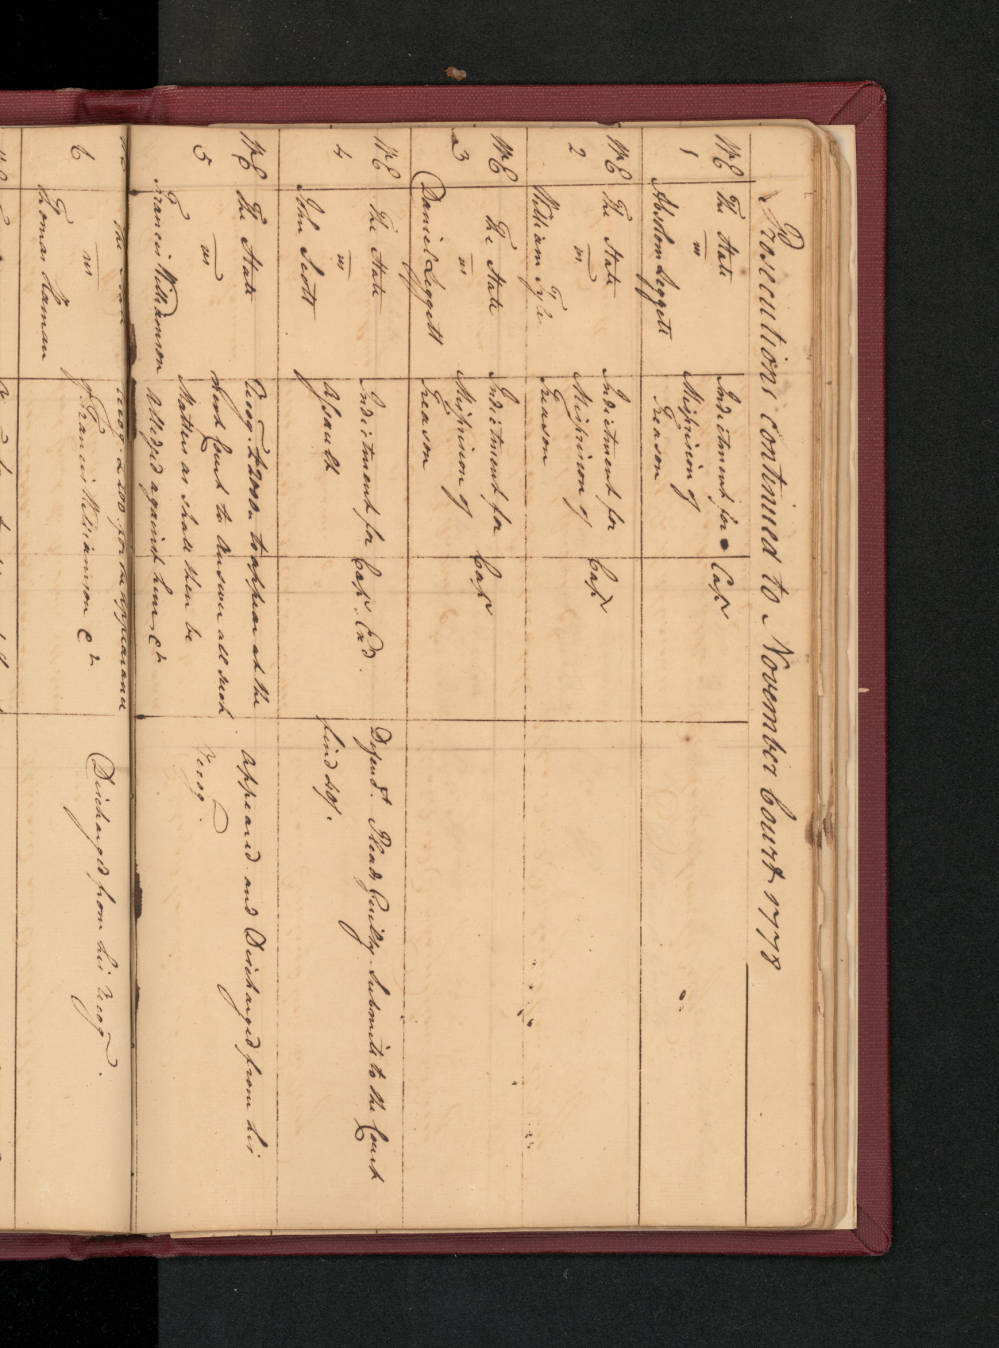 Prosecutions continued to November Court 1778
WC The State Indictment for Caps
1 vs Misprision of
Absolom Leggett Treason
WC The State Indictment for Caps
2 vs Misprision of
William Tyler Treason
WC The State Indictment for Caps
3 vs Misprision of
Daniel Leggett Treason
WC The State Indictment for Caps. Exd. Defendt. Pleads Guilty Submits to the Court
4 vs Assault fined 40/.
John Scott
WC The State Recog. £2000 to appear at the Appeared and Discharged from his
5 vs next Court to Answer all such Recog.
Matters as shall then be
Francis Williamson Alledged against him &c
The State Recog. £ for the appearance
6 vs of Francis Williamson &c Discharged from his Recog.
Thomas Harman